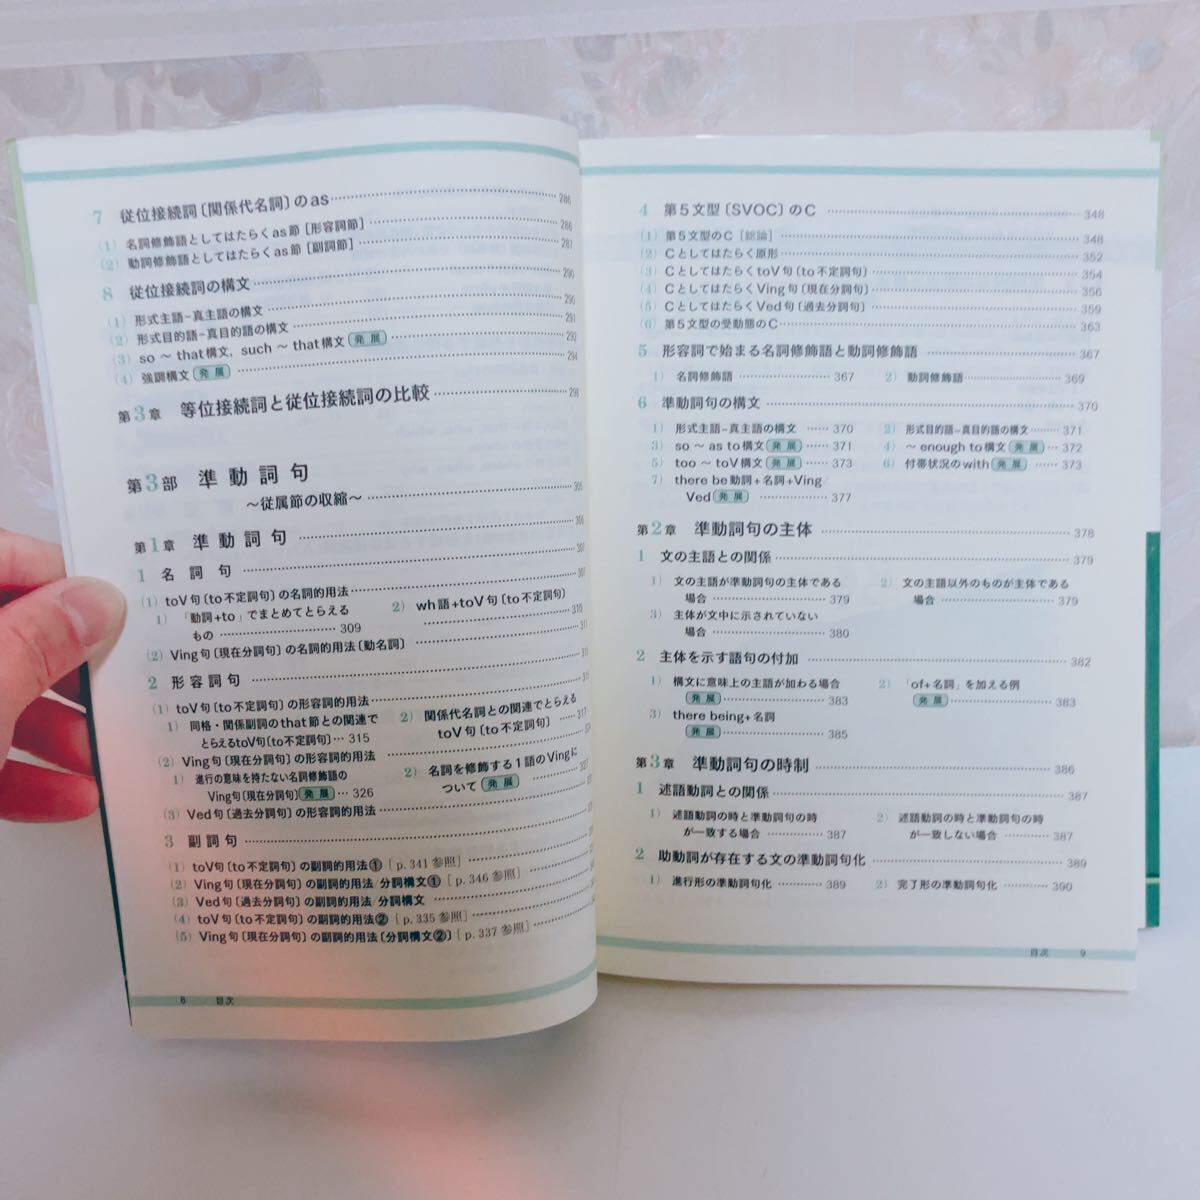 7 従位接続詞〔関係代名詞〕のas 286
(1) 名詞修飾語としてはたらくas節［形容詞節］ 286
(2) 動詞修飾語としてはたらくas節［副詞節］ 287
8 従位接続詞の構文 290
(1) 形式主語−真主語の構文 290
(2) 形式目的語−真目的語の構文 291
(3) so 〜 that構文, such 〜 that構文 発展 292
(4) 強調構文 発展 294
第3章 等位接続詞と従位接続詞の比較 298
第3部 準動詞句
〜従属節の収縮〜 305
第1章 準動詞句 306
1 名詞句 307
(1) toV句〔to不定詞句〕の名詞的用法 307
1) 「動詞+to」でまとめてとらえるもの 309
2) wh語+toV句〔to不定詞句〕 310
(2) Ving句〔現在分詞句〕の名詞的用法〔動名詞〕
2 形容詞句
(1) toV句〔to不定詞句〕の形容詞的用法
1) 同格・関係副詞のthat節との関連でとらえるtoV句〔to不定詞句〕 315
2) 関係代名詞との関連でとらえるtoV句〔to不定詞句〕 317
(2) Ving句〔現在分詞句〕の形容詞的用法
1) 進行の意味を持たない名詞修飾語のVing句〔現在分詞句〕 発展 326
2) 名詞を修飾する1語のVingについて 発展 327
(3) Ved句〔過去分詞句〕の形容詞的用法
3 副詞句
(1) toV句〔to不定詞句〕の副詞的用法①［p.341参照］
(2) Ving句〔現在分詞句〕の副詞的用法 分詞構文①［p.346参照］
(3) Ved句〔過去分詞句〕の副詞的用法 分詞構文
(4) toV句〔to不定詞句〕の副詞的用法②［p.335参照］
(5) Ving句〔現在分詞句〕の副詞的用法〔分詞構文②〕［p.337参照］
8 目次
4 第5文型〔SVOC〕のC 348
(1) 第5文型のC［総論］ 348
(2) Cとしてはたらく原形 352
(3) CとしてはたらくtoV句〔to不定詞句〕 354
(4) CとしてはたらくVing句〔現在分詞句〕 356
(5) CとしてはたらくVed句〔過去分詞句〕 359
(6) 第5文型の受動態のC 363
5 形容詞で始まる名詞修飾語と動詞修飾語 367
1) 名詞修飾語 367 2) 動詞修飾語 369
6 準動詞句の構文 370
1) 形式主語−真主語の構文 370 2) 形式目的語−真目的語の構文 371
3) so 〜 as to構文 発展 371 4) 〜 enough to構文 発展 372
5) too 〜 toV構文 発展 373 6) 付帯状況のwith 発展 373
7) there be動詞+名詞+Ving
Ved 発展 377
第2章 準動詞句の主体 378
1 文の主語との関係 379
1) 文の主語が準動詞句の主体である場合 379
2) 文の主語以外のものが主体である場合 379
3) 主体が文中に示されていない場合 380
2 主体を示す語句の付加 382
1) 構文に意味上の主語が加わる場合 発展 383
2) 「of+名詞」を加える例 発展 383
3) there being+名詞 発展 385
第3章 準動詞句の時制 386
1 述語動詞との関係 387
1) 述語動詞の時と準動詞句の時が一致する場合 387
2) 述語動詞の時と準動詞句の時が一致しない場合 387
2 助動詞が存在する文の準動詞句化 389
1) 進行形の準動詞句化 389 2) 完了形の準動詞句化 390
目次 9